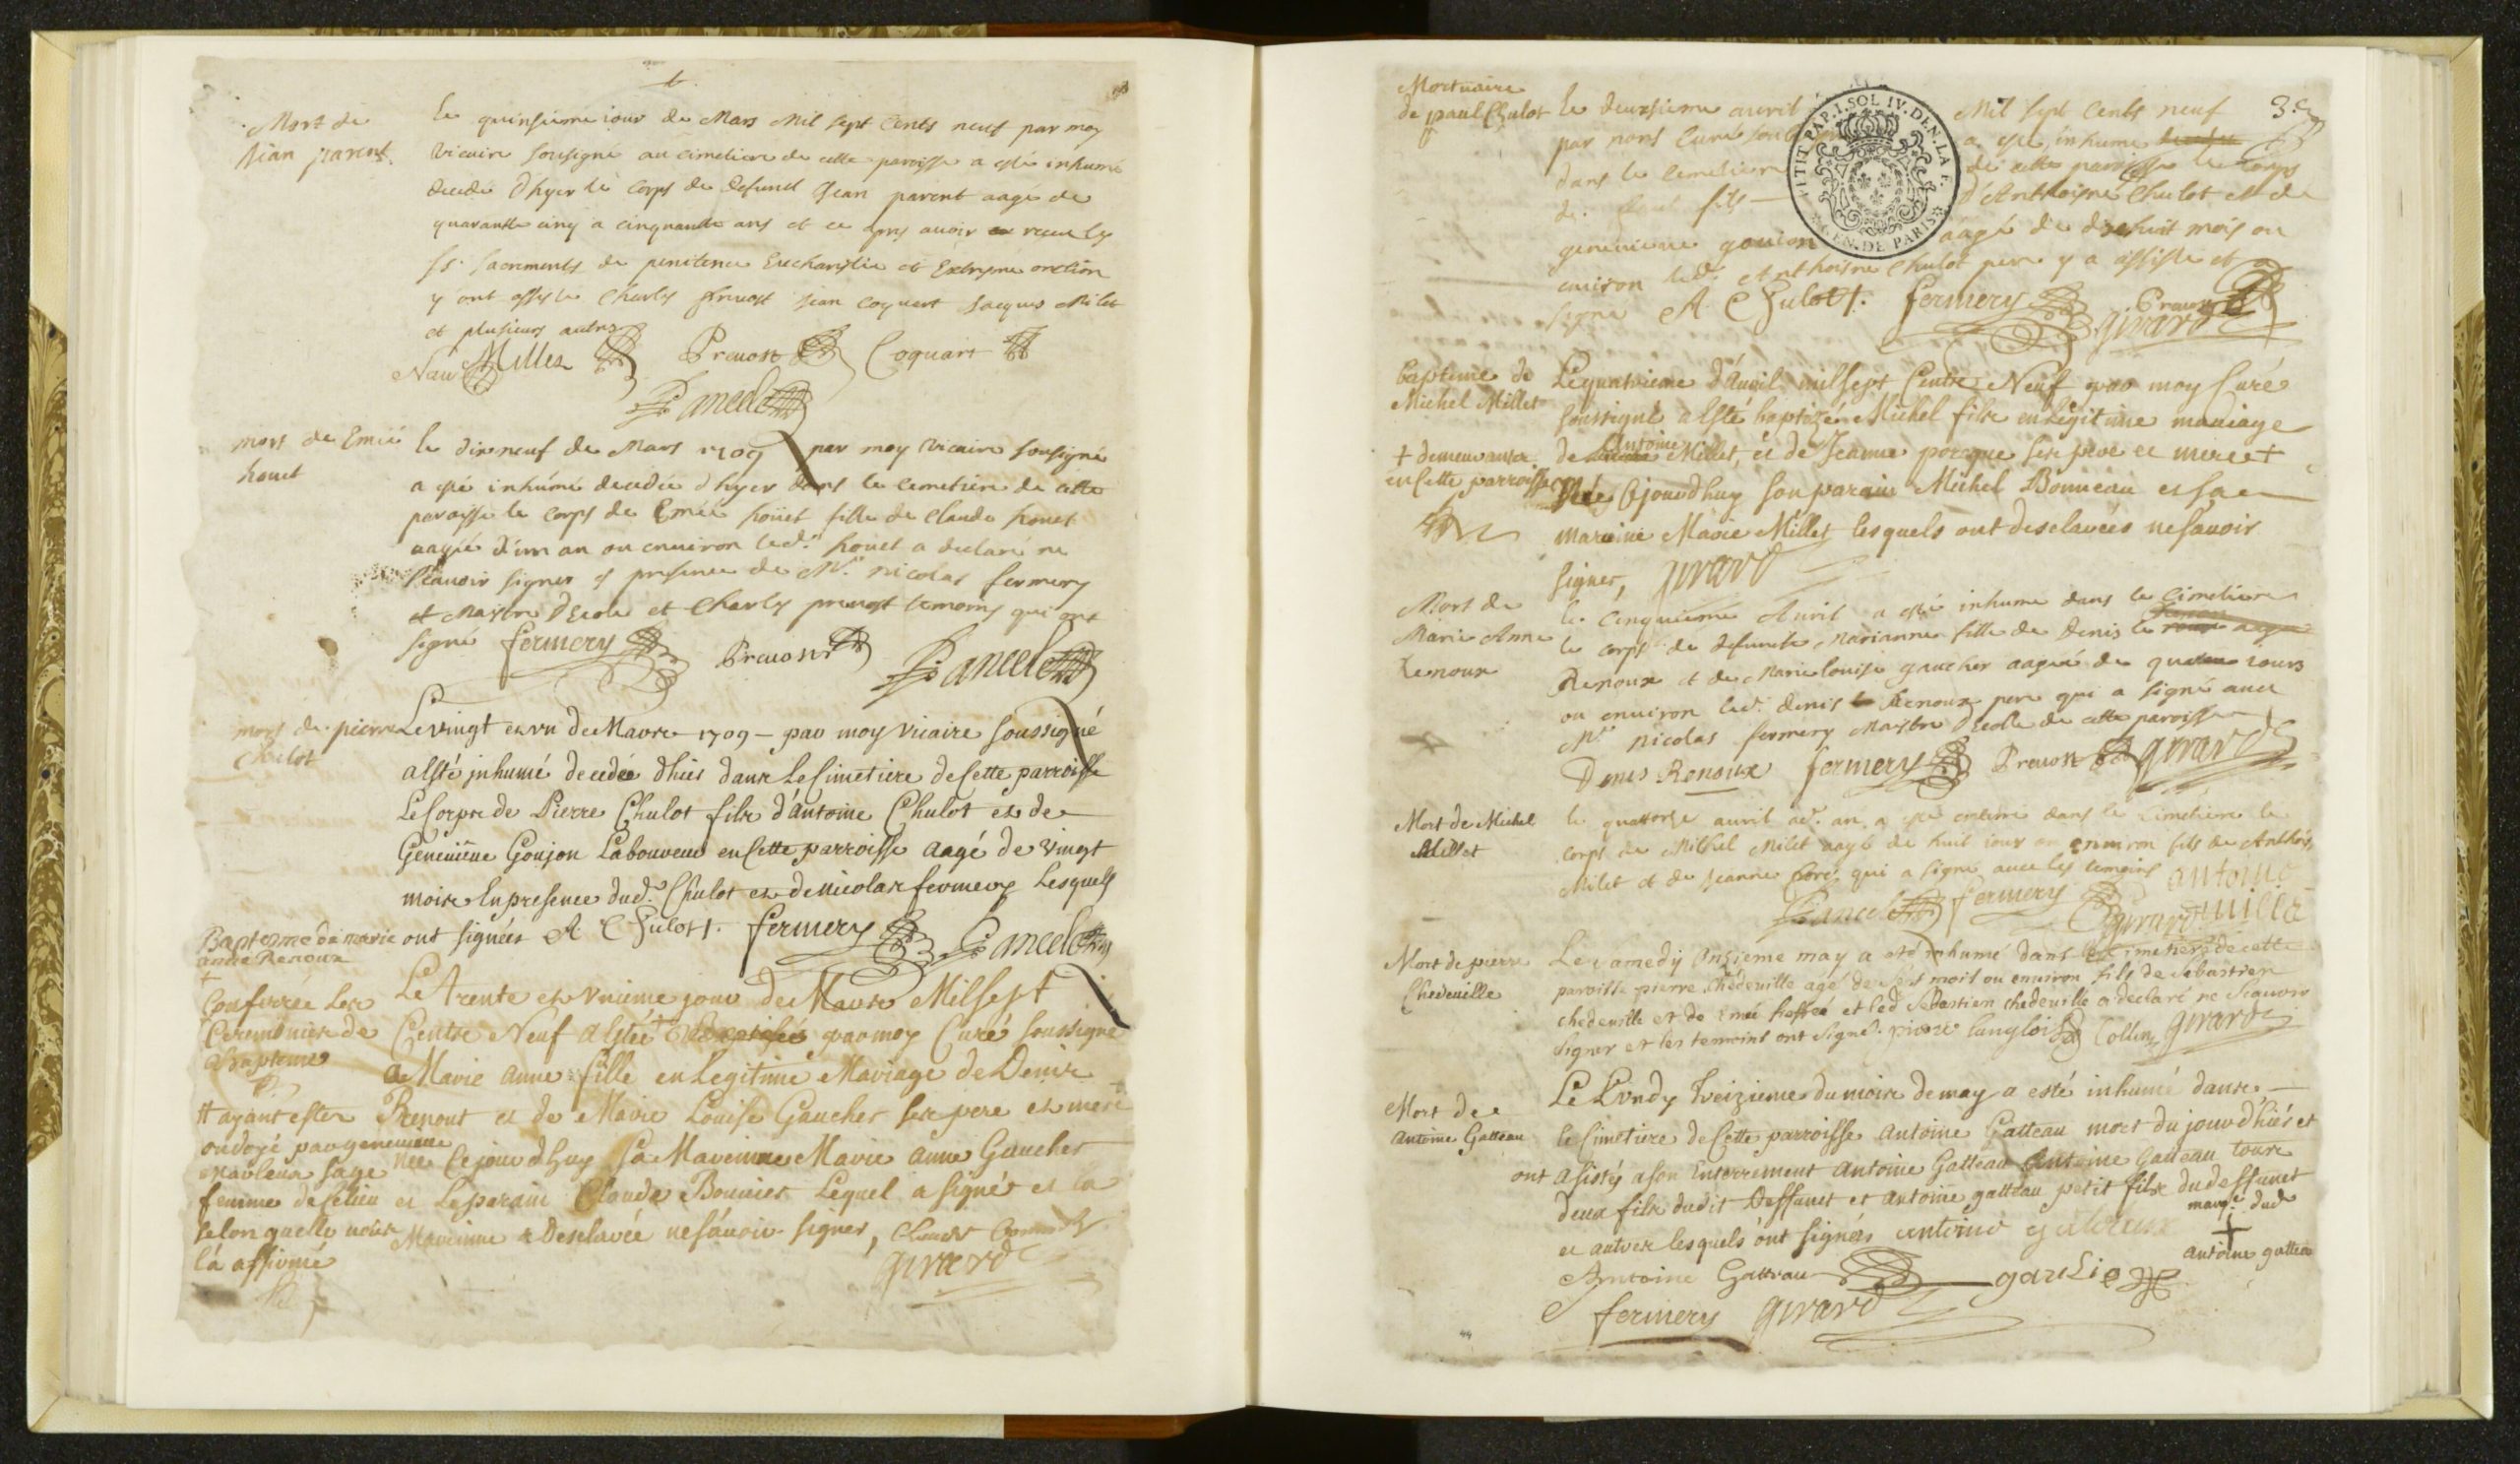 Mort de
Jean parent.
Le quinsieme iour de Mars Mil sept Cents neuf par moy
Vicaire sousigné au cimetiere de cette paroisse a esté inhumé
decedé d'hyer le corps de defunct Jean parent aagé de
quarante cinq a cinquante ans et ce apres auoir receu les
Sts. sacrements de penitence Eucharistie et Extreme onction
y ont assisté Charles preuost Jean Coquart Jacques Milet
et plusieurs autres
Nau Milles Preuost Coquart
P. ancelet
mort de Emée
houet
le dixneuf de Mars 1709 par moy vicaire sousigné
a esté inhumé decedée d'hyer dans le cemetiere de cette
paroisse le corps de Emée houet fille de Claude houet
aagée d'un an ou enuiron led. houet a declaré ne
scauoir signer et presence de Mr. Nicolas fermery
Maistre d'Ecole et Charles preuost temoins qui ont
signé fermery Preuost P. ancelet
mort de pierre
Chulot
Le vingt et vn de Mars 1709 – par moy vicaire soussigné
a Esté inhumé decedée d'hier dans Le Cimetiere de Cette parroisse
Le Corps de Pierre Chulot fils d'antoine Chulot et de
Geneuiéue Goujon Laboureur en Cette parroisse aagé de vingt
mois En presence dud. Chulot et de nicolas fermery Lesquels
ont signées A. Chulot. fermery P. ancelet
Bapteme de marie
anne Renoux
+
Conferrée Les
Ceremonies de
Baptemes
Le Trente et vnieme jour de Mars Mil Sept
Cents Neuf a Estée par moy Curé Soussigné
a Marie anne fille en Legitime Mariage de Denis
Renoux et de Marie Louise Gaucher ses pere et mere
Née Ce jourd'huy Sa Mareinne Marie anne Gaucher
et Le parain Claude Bonnier Lequel a signér et la
Mareinne a Desclarée ne sauoir signer,
girard
# ayant ester
ondoyé par geneuieue
sage
femme de Ce lieu
selon quelle nous
l'a affirmé
Mortuaire
de paul Chulot
3e
le deuxsieme auril Mil sept cents neuf
par nous Curé a esté inhumé
dans le cemetiere de cette paroisse le corps
de fils d'Anthoisne Chulot et de
geneuieue goujon aagé de dixhuit mois ou
enuiron led. Anthoisne Chulot pere y a assisté et a
signé A. Chulot. fermery Preuost girard
INSTITUT. PAP. I. SOL IV. DEN. LA F.
GEN. DE PARIS
Bapteme de
Michel Millet
Le quatrieme d'Auril mil sept Cents Neuf par moy Curé
soussigné a Esté baptizé Michel fils en Legitime mariage
de antoine Millet, et de Jeanne porcque ses pere et mere +
+ demeurant
en Cette parroisse
Née Cejourdhuy son parain Michel Bonneau et sa
mareine Marie Millet lesquels ont desclarées ne sauoir
signer, girard
Mort de
Marie Anne
Renoux
le cinquieme Auril a esté inhume dans le Cimetiere
le corps de defuncte Marianne fille de denis
Renoux et de Marie louise gaucher aagée de jours
ou enuiron led. denis Renoux pere qui a signé auec
Mr. Nicolas fermery Maistre d'Ecolle de cette paroisse
Denis Renoux fermery Preuost girard
Mort de Michel
Millet
le quattorse auril aud. an a esté enterré dans le Cimetiere le
corps de Michel Milet aagé de huit iour ou enuiron fils de Anthois
Milet et de Jeanne qui a signé auec les temoins antoine
P. ancelet fermery girard milla
Mort de pierre
Chedeuille
Le samedy Onsieme may a eté inhumé dans le cimetiere de cette
paroisse pierre chedeuille agé de sept mois ou enuiron fils de Sebastien
chedeuille et de et led Sebastien chedeuille a declaré ne Scauoir
signer et les temoins ont signé. pierre langlois Collin girard
Mort de
Antoine Gatteau
Le Lundy treizieme du mois de may a esté inhumé dans
le Cimetiere de Cette parroisse Antoine Gatteau mort du jour d'hiér et
ont asistés a son Enterrement antoine Gatteau Antoine Gatteau tous
deux fils dudit Deffunct et antoine gatteau petit fils du deffunct
et autres lesquels ont signés antoine
marq. dud
+
antoine gatteau
Antoine Gatteau
fermery girard